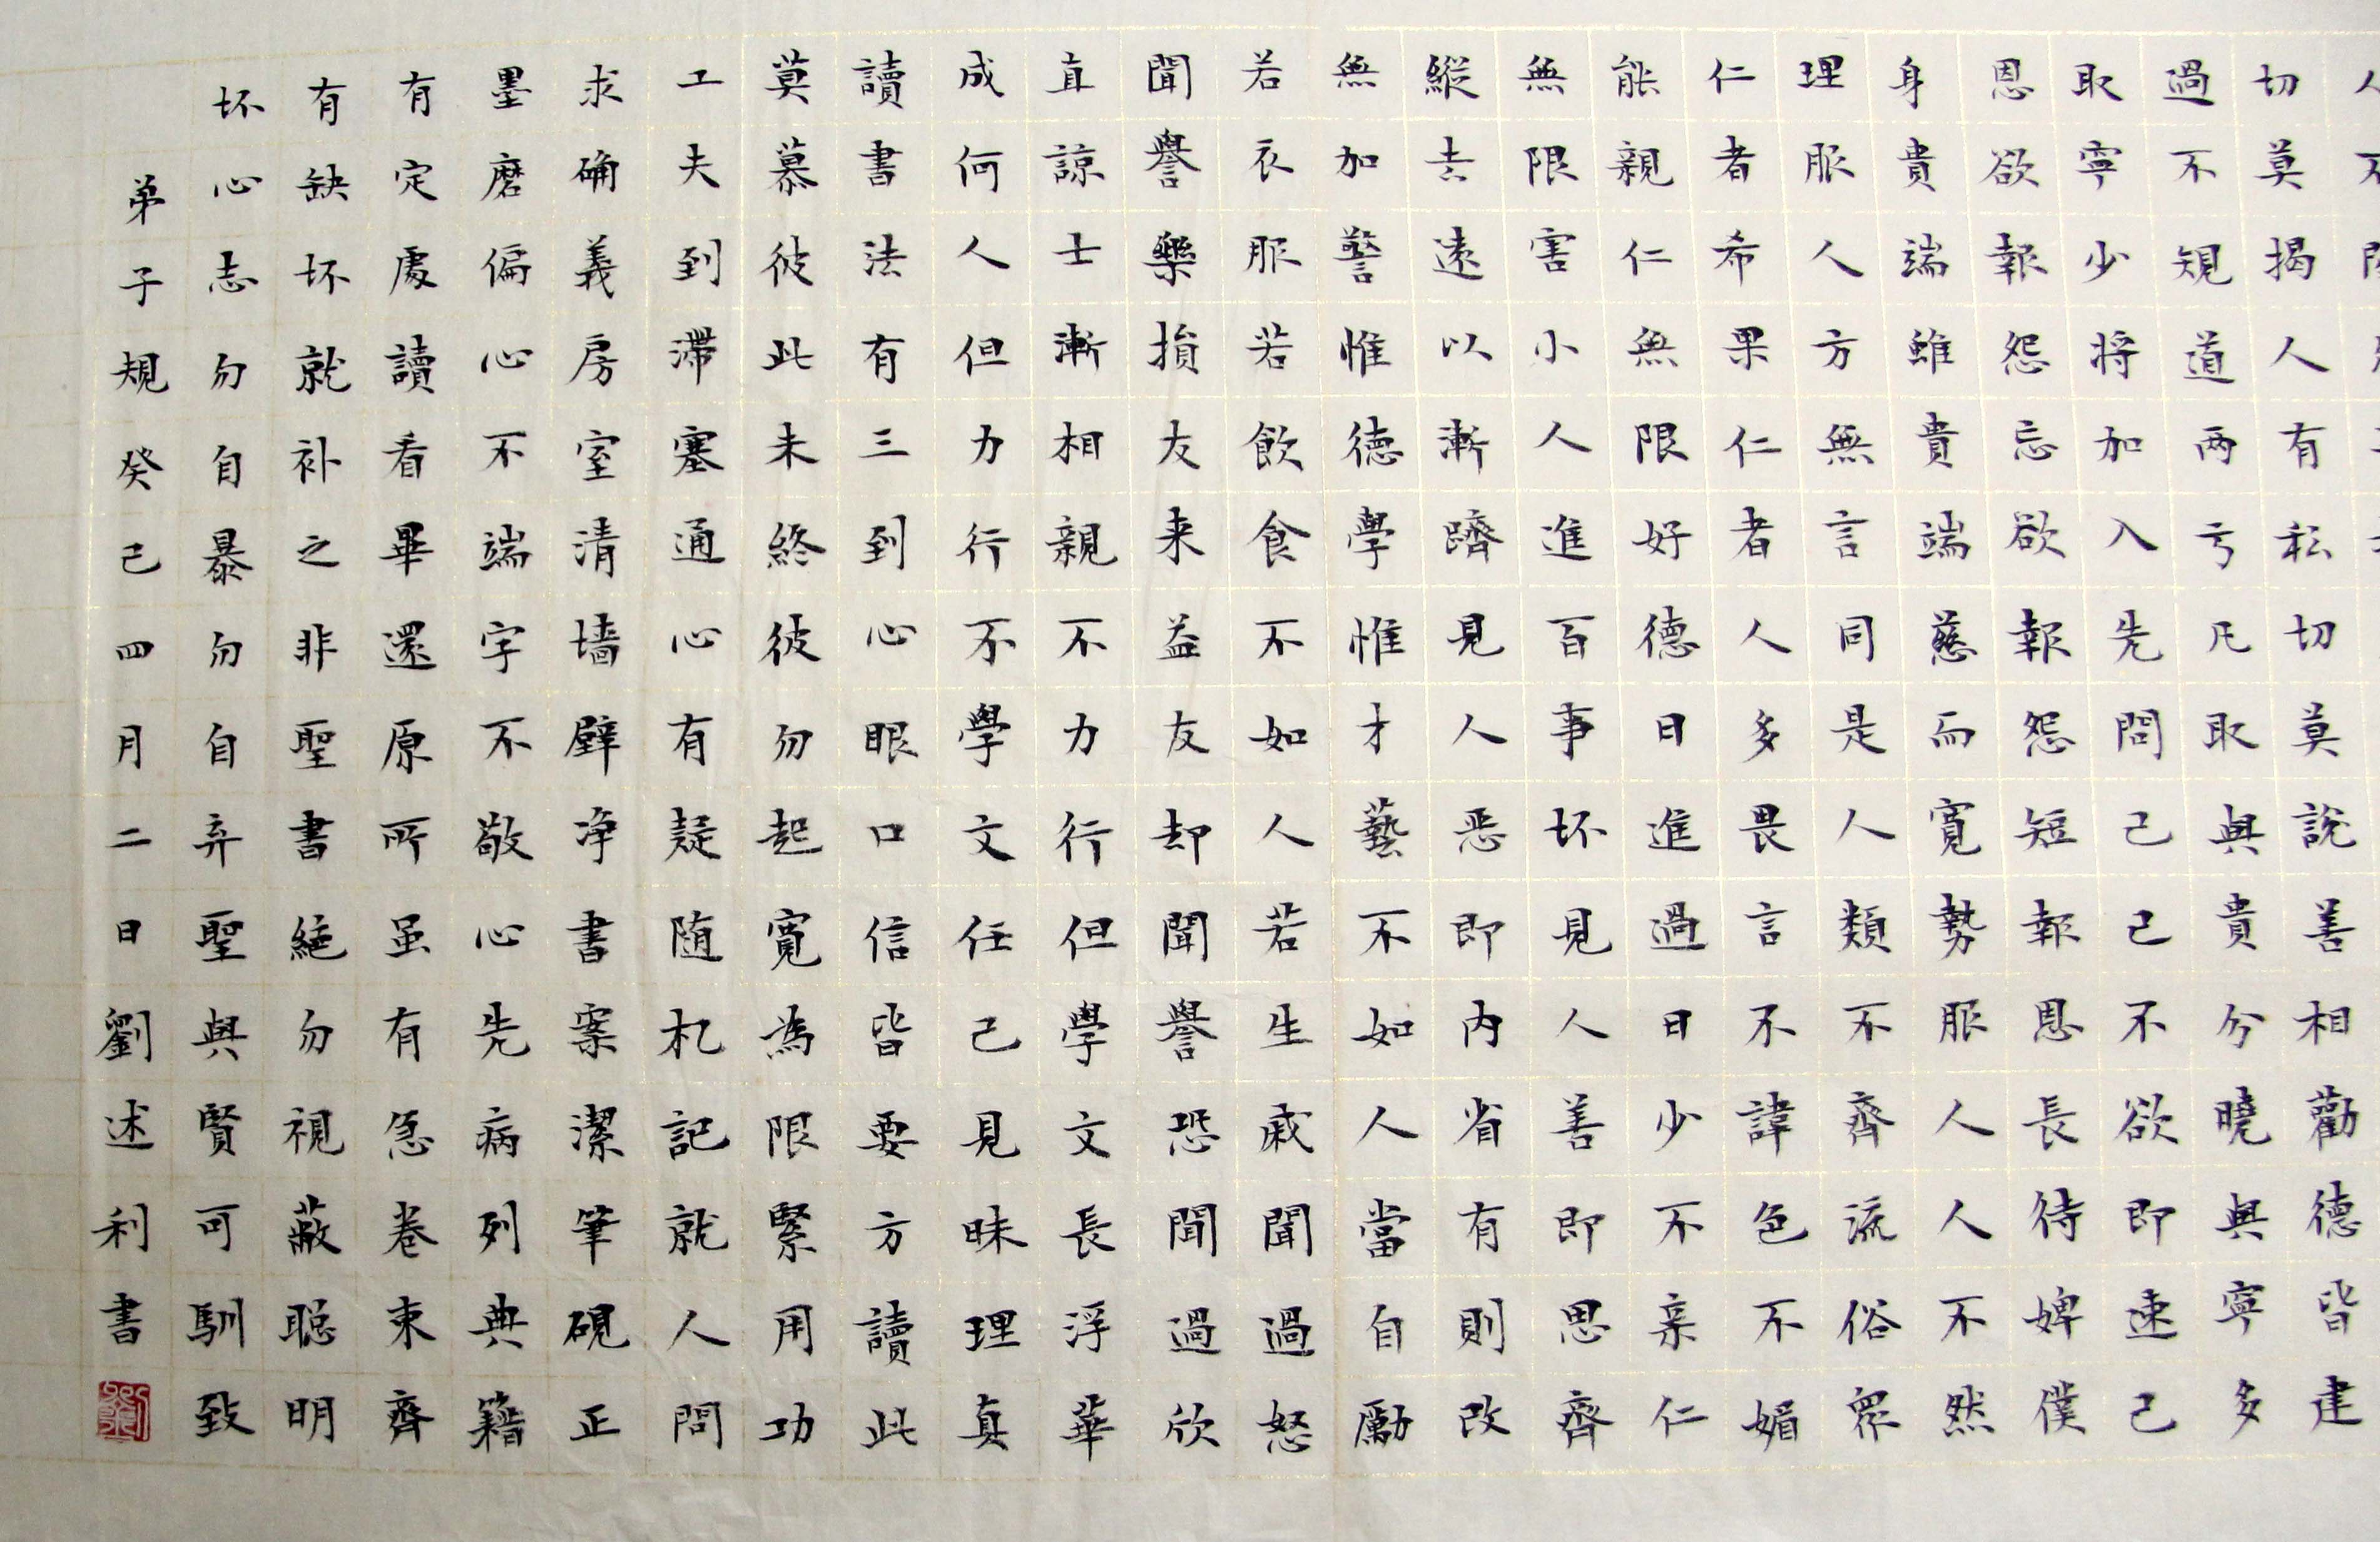 切莫揭人有私切莫說善相勸德皆建
過不規道两亏凡取與貴分曉與寧多
取寧少将加入先問己己不欲即速己
恩欲報怨忘欲報怨短報恩長待婢僕
身貴端雖貴端慈而寬勢服人人不然
理服人方無言同是人類不齊流俗眾
仁者希果仁者人多畏言不諱色不媚
能親仁無限好德日進過日少不亲仁
無限害小人進百事坏見人善即思齊
縱去遠以漸躋見人恶即内省有則改
無加警惟德學惟才藝不如人當自勵
若衣服若飲食不如人若生戚聞過怒
聞譽樂損友来益友却聞譽恐聞過欣
直諒士漸相親不力行但學文長浮華
成何人但力行不學文任己見昧理真
讀書法有三到心眼口信皆要方讀此
莫慕彼此未終彼勿起寬為限緊用功
工夫到滯塞通心有疑随札記就人問
求确義房室清墙壁净書案潔筆硯正
墨磨偏心不端字不敬心先病列典籍
有定處讀看畢還原所虽有急卷束齊
有缺坏就补之非聖書絕勿視蔽聪明
坏心志勿自暴勿自弃聖與賢可馴致
弟子規癸巳四月二日劉述利書
劉